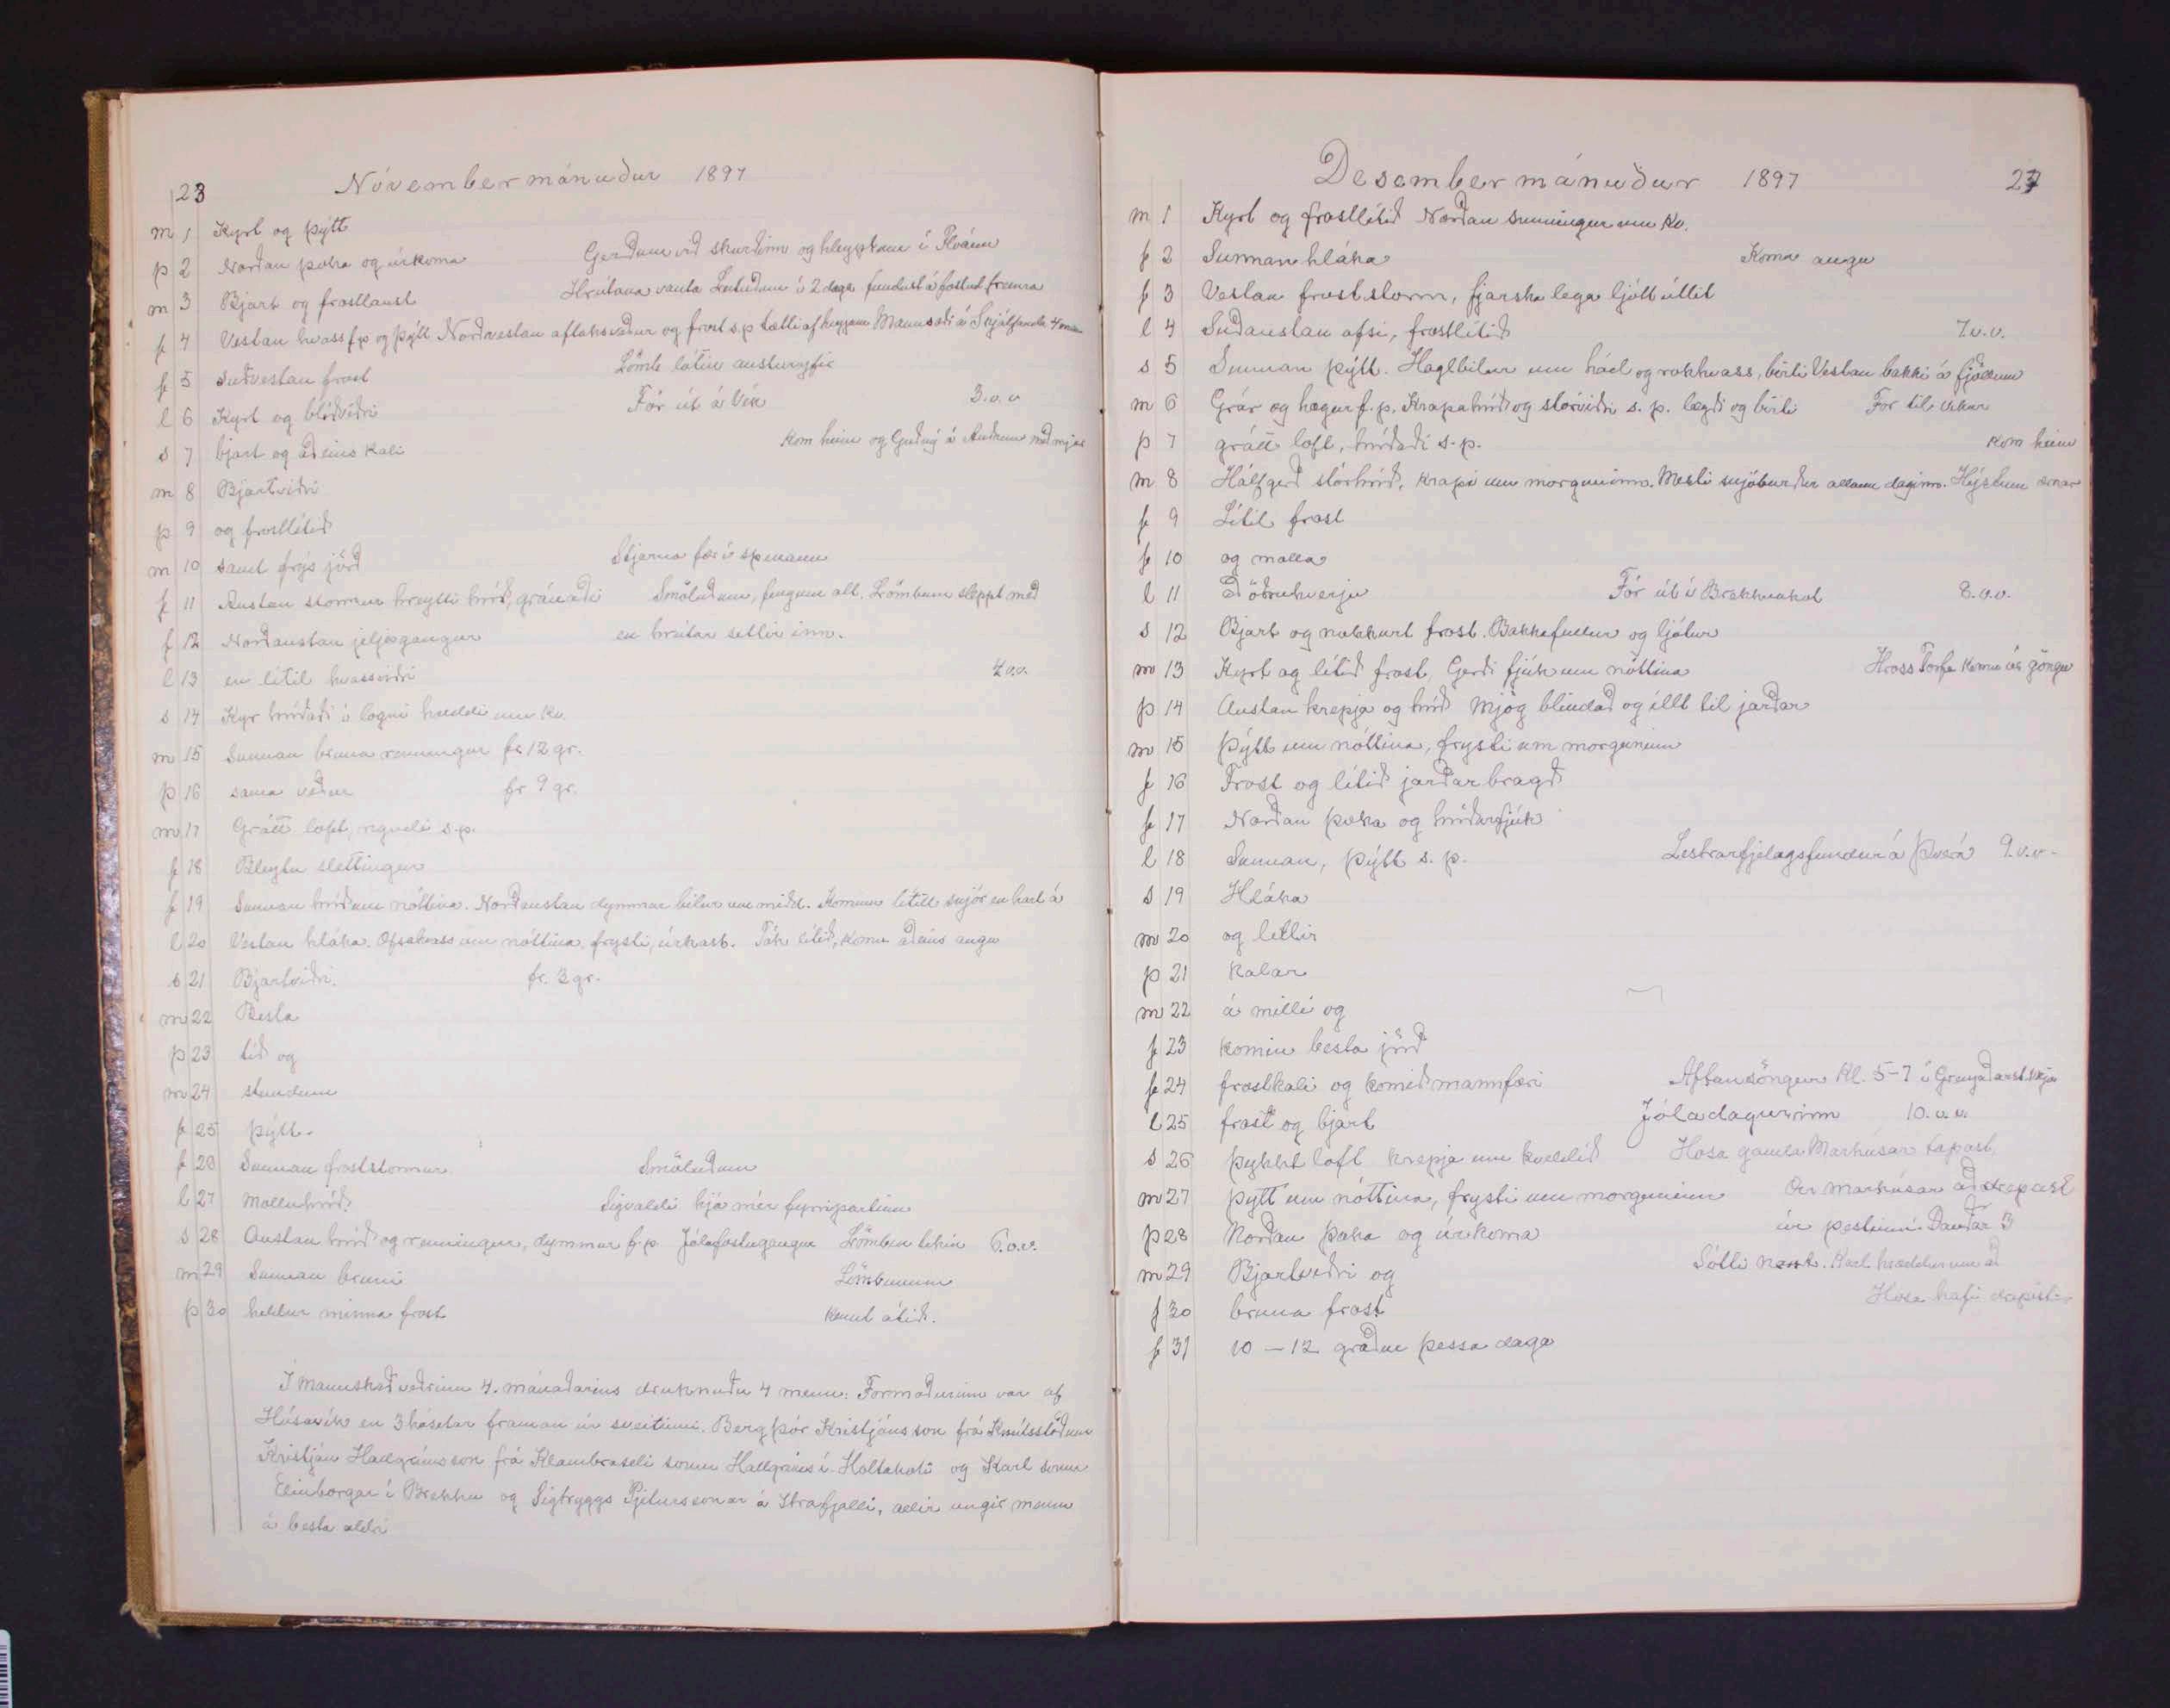 23
Nóvembermánuður 1897
m 1 Kyrt og þýtt
þ 2 Norðan þoka og úrkoma Gerðum við skurðinn og hleyptum í Flóann
m 3 Bjart og frostlaust Hrútana vanta Leituðum í 2 daga fundust á
f 4 Vestan hvass f.p og þýtt Norðvestan aftaksveður og frost s.p
f 5 Suðvestan frost Lömb látin austuryfir
l 6 Kyrt og blíðviðri Fór út á Vík 3.v.v
s 7 bjart og aðeins kali Kom heim og Guðný á Auðnum með mjer
m 8 Bjartviðri
þ 9 og frostlitið
m 10 samt frýs jörð Stjarna fór í
f 11 Austan stormur hreytti hríð, gránaði Smöluðum, fengum allt. Lömbum sleppt með
f 12 Norðaustan jeljagangur en hrútar settir inn.
l 13 en lítil hvassviðri 4 v.v.
s 14 Kyr hríðaði í logni kveldi um kv.
m 15 Sunnan bruna renningur fr 12 gr.
þ 16 sama veður fr 9 gr.
m 17 Grátt loft, rigndi s.p.
f 18 Bleytu slettingur
f 19 Sunnan hríð um nóttina. Norðaustan dymmur bilur um midd. Kominn lítill snjór en hart á
l 20 Vestan hláka. Ofsahvass um nóttina, frysti, úrkast. Tók lítið, komu aðeins augu
s 21 Bjartviðri. fr. 3 gr.
m 22 Besta
þ 23 tíð og
m 24 stundum
f 25 þýtt.
f 26 Sunnan froststormur Smöluðum
l 27 Molluhríð. Sigvaldi hjá mér fyrripartinn
s 28 Austan hríð og renningur, dymmur f.p Jólaföstugangur Lömbin tekin 6.v.v.
m 29 Sunnan bruni Lömbunum
þ 30 heldur minna frost kennt átið.
Í mannskaðveðrinu 4. mánaðarins druknuðu 4 menn: Formaðurinn var af
Húsavík en 3 hásetar framan úr sveitinni. Bergþór Kristjánsson frá Knútsstöðum
Kristján Hallgrímsson frá Klambraseli sonur Hallgríms í Holtakoti og Karl sonur
Elinborgar í Brekku og Sigtryggs Pjeturssonar á Hvafjalli, allir ungir menn
á besta aldri
Desembermánuður 1897
m 1 Kyrt og frostlítið Norðan sunningur um kv.
f 2 Sunnan hláka Koma augu
f 3 Vestan froststorm, fjarskalega ljótt útlit
l 4 Suðaustan ofsi, frostlítið 7.v.v.
s 5 Sunnan þýtt. Haglbilur um hád og rokhvass, birti Vestan bakki á fjöllum
m 6 Grár og hægur f.p. Krapahríð og stórviðri s.p. lægði og birti Fór til Víkur
þ 7 grátt loft, hríðaði s.p. kom heim
m 8 Hálfgerð stórhríð, krapi um morguninn. Mesti snjóburður allann daginn. Hýstum
f 9 Lítil frost
f 10 og molla
l 11 að öðruhverju Fór út í Brekknakot 8.v.v.
s 12 Bjart og nokkurt frost. Bakkafullur og ljótur
m 13 Kyrt og lítið frost, Gerði fjúk um nóttina Hross Torfa komu úr göngu
þ 14 Austan krepja og hríð Mjög blindað og illt til jarðar
m 15 Þýtt um nóttina, frysti um morguninn
f 16 Frost og lítið jarðarbragð
f 17 Norðan þoka og hríðarfjúk
l 18 Sunnan, þýtt s.p. Lestrarfjelagsfundur á Þverá 9.v.v.
s 19 Hláka
m 20 og lettir
þ 21 kalar
m 22 á milli og
f 23 komin besta jörð
f 24 frostkali og komið mannfæri Aftansöngur Kl. 5-7 í
l 25 frost og bjart Jóladagurinn 10.v.v.
s 26 þykkt loft krepja um kveldið Hosa gamla Markúsar tapast,
m 27 þýtt um nóttina, frysti um morguninn Ær Markúsar að drepast
þ 28 Norðan þoka og úrkoma úr pestinni. Dauðar 3
m 29 Bjartviðri og Sótti Karl hræddur um að
f 30 bruna frost Hosa hafi drepist.
f 31 10 – 12 gráður þessa daga